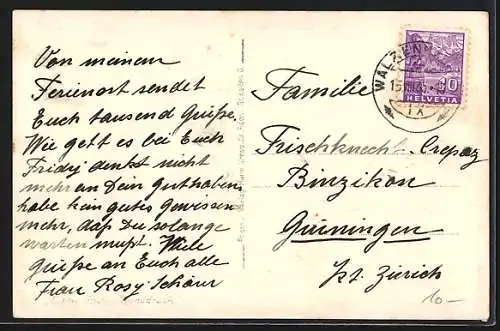 Von meinem
Ferienort sendet
Euch tausend Grüße.
Wie geht es bei Euch
Fridy denkt nicht
mehr an Dein Guthaben,
habe kein gutes Gewissen
mehr, daß Du so lange
warten mußt. Viele
Grüße an Euch alle
Frau Rosy Schärer
Familie
Frischknecht-Crepaz
Binzikon
Grüningen
Kt. Zürich
WALZEN
IX
10
HELVETIA
10-